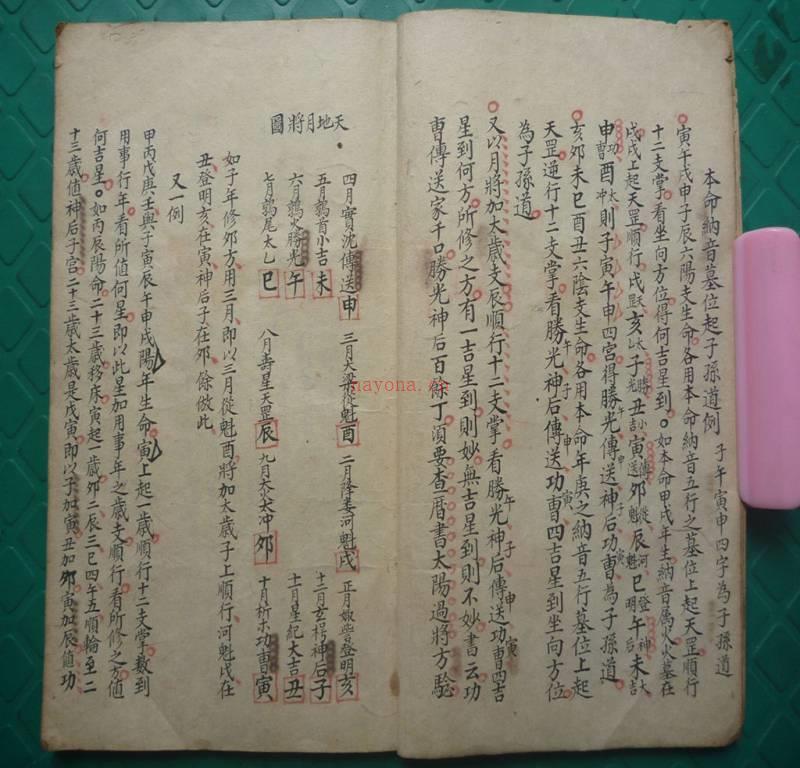 本命納音墓位起子孫道例 子午寅申四字為子孫道
寅午戌申子辰六陽支生命各用本命納音五行之墓位上起天罡順行
十二支掌看坐向方位得何吉星到如本命甲戌年生納音屬火火墓在
戌戌上起天罡順行戌天罡亥太乙子勝光丑小吉寅傳送卯從魁辰河魁巳登明午神后未大吉
申功曹酉太冲則子寅午申四宮得勝光午傳送申神后子功曹寅為子孫道
亥卯未巳酉丑六陰支生命各用本命年庚之納音五行墓位上起
天罡逆行十二支掌看勝光午神后子傳送申功曹寅四吉星到坐向方位
為子孫道
又以月將加太歲支辰順行十二支掌看勝光午神后子傳送申功曹寅四吉
星到何方所修之方有一吉星到則妙無吉星到則不妙書云功
曹傳送家千口勝光神后百餘丁須要查曆書太陽過將方驗
天地月將圖
四月實沈傳送申 三月大梁從魁酉 二月降婁河魁戌 正月娵訾登明亥
五月鶉首小吉未 十二月玄枵神后子
六月鶉火勝光午 十一月星紀大吉丑
七月鶉尾太乙巳 八月壽星天罡辰 九月大火太冲卯 十月析木功曹寅
如子年修卯方用三月即以三月從魁酉將加太歲子上順行河魁戌在
丑登明亥在寅神后子在卯餘倣此
又一例
甲丙戊庚壬與子寅辰午申戌陽年生命寅上起一歲順行十二支掌數到
用事行年看所值何星即以此星加用事年之歲支順行看所修之方值
何吉星如丙辰陽命二十三歲移床寅起一歲卯二辰三巳四午五順輪至二
十三歲值神后子宮二十三歲太歲是戊寅即以子加寅丑加卯寅加辰值功
mayona.cn